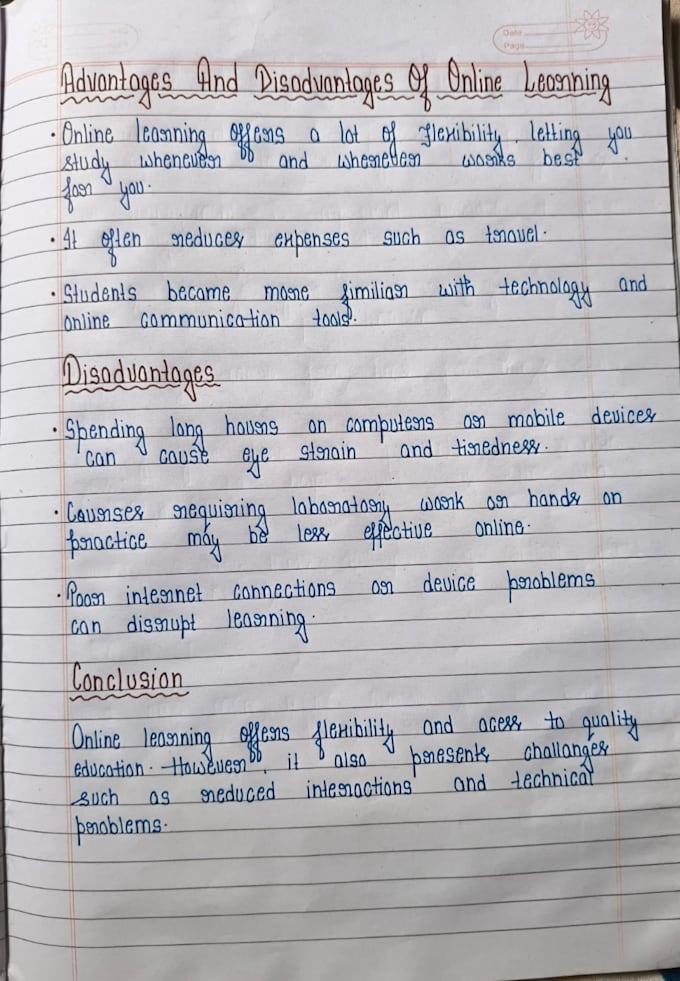 Date
Page
Advantages And Disadvantages Of Online Learning
• Online learning offers a lot of flexibility, letting you
study whenever and wherever works best
for you.
• It often reduces expenses such as travel.
• Students become more similiar with technology and
online communication tools.
Disadvantages
• Spending long hours on computers or mobile devices
can cause eye strain and tiredness.
• Courses requiring laboratory work or hands on
practice may be less effective online.
• Poor internet connections or device problems
can disrupt learning.
Conclusion
Online learning offers flexibility and acess to quality
education. However, it also presents challanges
such as reduced interactions and technical
problems.